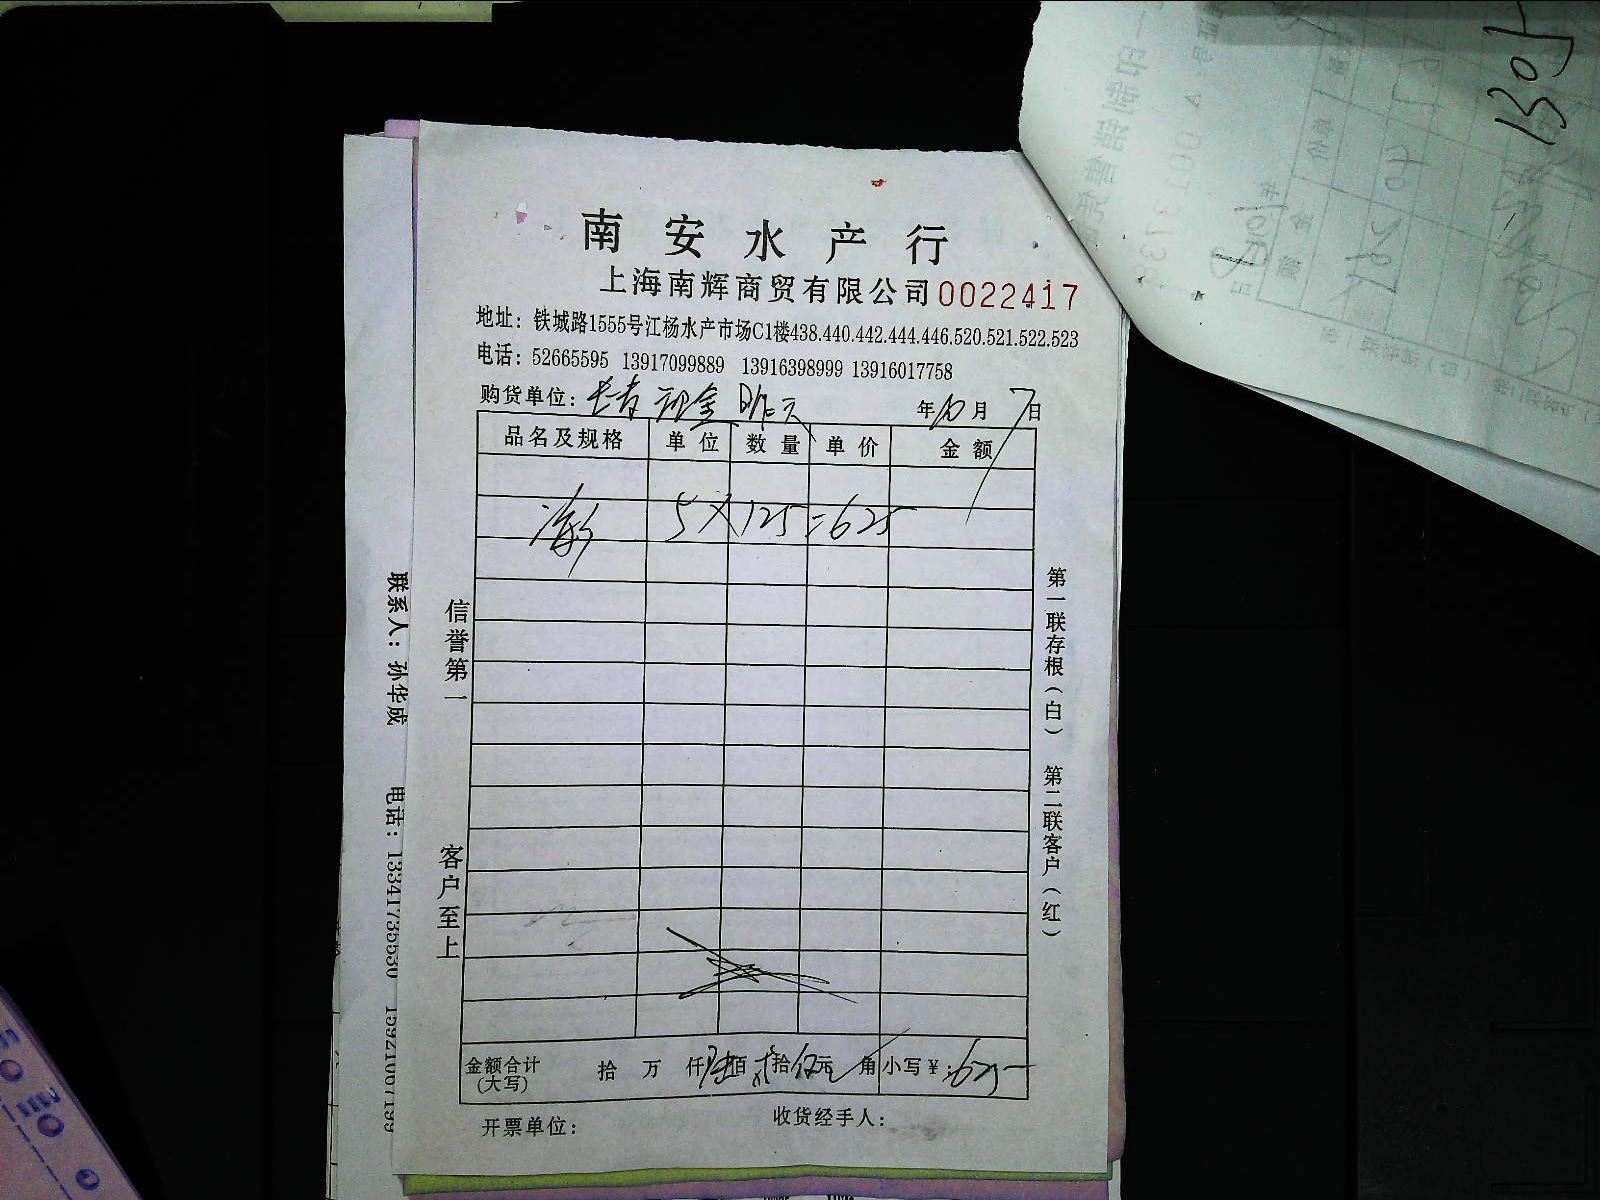 南安水产行
上海南辉商贸有限公司 0022417
地址：铁城路1555号江杨水产市场C1楼438.440.442.444.446.520.521.522.523
电话：52665595 13917099889 13916398999 13916017758
购货单位：长青 现金 昨天 年10月7日
品名及规格 单位 数量 单价 金额
5×125=625
金额合计（大写） 拾 万 仟陆佰贰拾伍元 角 小写¥：625
开票单位： 收货经手人：
信誉第一 客户至上
第一联存根（白） 第二联客户（红）
联系人：孙华成 电话：13341735530 15921067199
1305